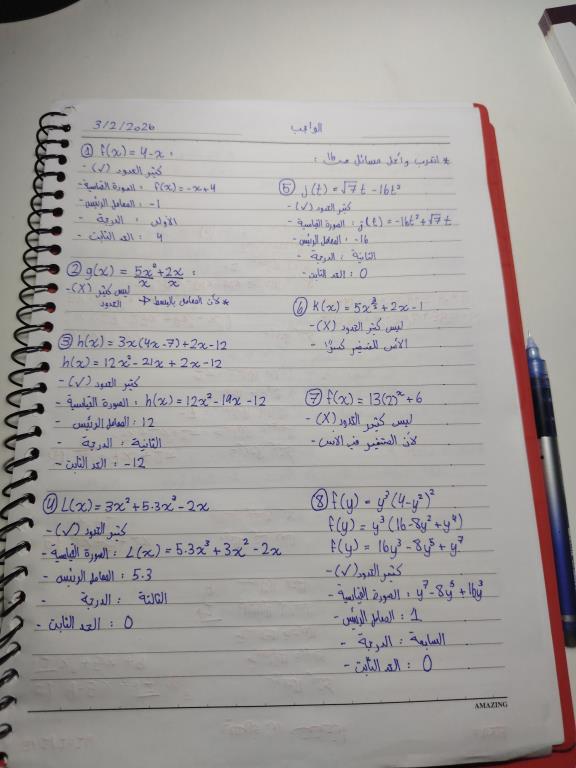 3/2/2026
الواجب
* اتدرب وأحل مسائل صـ16 :
① f(x) = 4-x :
كثير الحدود (✓) -
الصورة القياسية : f(x) = -x+4 -
المعامل الرئيس : -1 -
الدرجة : الأولى -
الحد الثابت : 4 -
② g(x) = 5x²/x + 2x/x :
ليس كثير الحدود (X) -
* لأن المعامل بالبسط
③ h(x) = 3x(4x-7)+2x-12
h(x) = 12x²-21x+2x-12
كثير الحدود (✓) -
الصورة القياسية : h(x) = 12x²-19x-12 -
المعامل الرئيس : 12 -
الدرجة : الثانية -
الحد الثابت : -12 -
④ L(x) = 3x²+5.3x³-2x
كثير الحدود (✓) -
الصورة القياسية : L(x) = 5.3x³+3x²-2x -
المعامل الرئيس : 5.3 -
الدرجة : الثالثة -
الحد الثابت : 0 -
⑤ j(t) = √7 t - 16t²
كثير الحدود (✓) -
الصورة القياسية : j(t) = -16t²+√7 t -
المعامل الرئيس : -16 -
الدرجة : الثانية -
الحد الثابت : 0 -
⑥ k(x) = 5x +2x-1
ليس كثير الحدود (X) -
الأس للمتغير كسرًا -
⑦ f(x) = 13(2)ˣ+6
ليس كثير الحدود (X) -
لأن المتغير في الأس -
⑧ f(y) = y³(4-y²)²
f(y) = y³(16-8y²+y⁴)
f(y) = 16y³-8y⁵+y⁷
كثير الحدود (✓) -
الصورة القياسية : y⁷-8y⁵+16y³ -
المعامل الرئيس : 1 -
الدرجة : السابعة -
الحد الثابت : 0 -
AMAZING